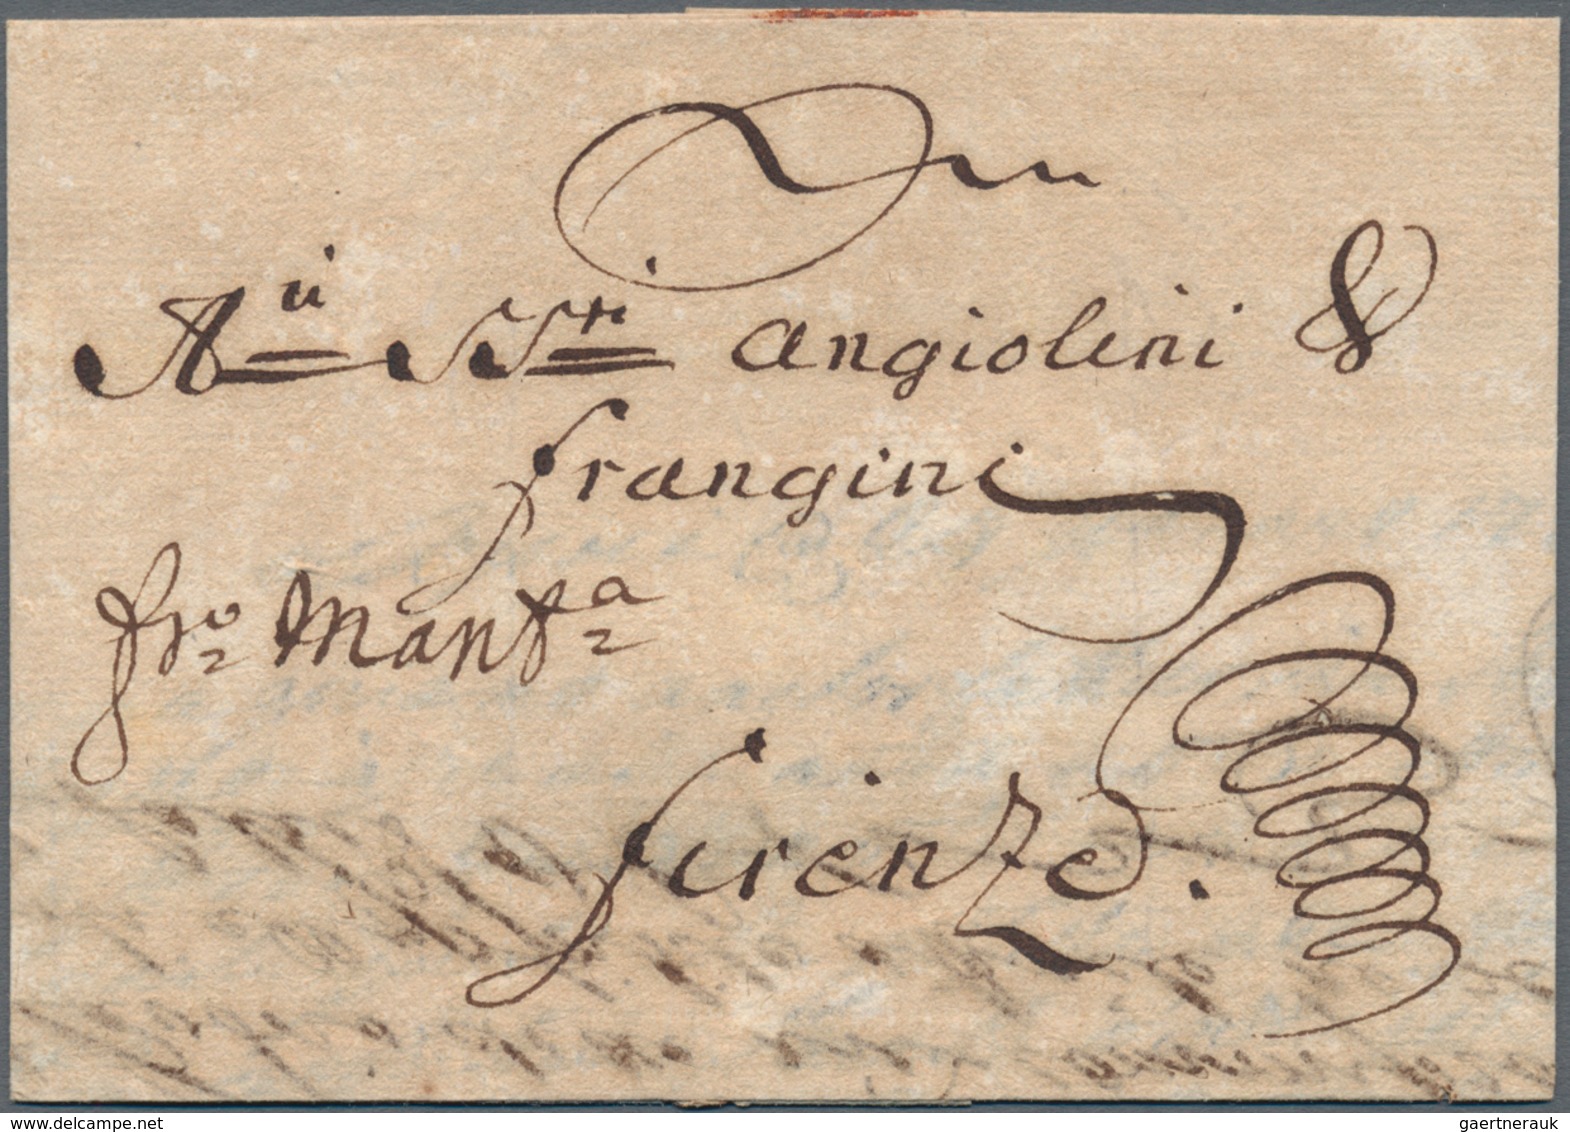 A.ii SS.ri Angiolini &
Frangini
fr.o Mant.a
Firenze.
delcampe.net
gaertnerauk